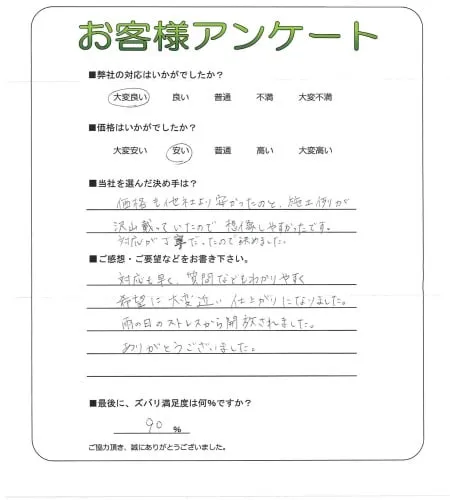 お客様アンケート
■弊社の対応はいかがでしたか？
大変良い 良い 普通 不満 大変不満
■価格はいかがでしたか？
大変安い 安い 普通 高い 大変高い
■当社を選んだ決め手は？
価格も他社より安かったのと、施工例が
沢山載っていたので想像しやすかったです。
対応が丁寧だったので決めました。
■ご感想・ご要望などをお書き下さい。
対応も早く、質問などもわかりやすく
希望に大変近い仕上がりになりました。
雨の日のストレスから開放されました。
ありがとうございました。
■最後に、ズバリ満足度は何%ですか？
90 %
ご協力頂き、誠にありがとうございました。